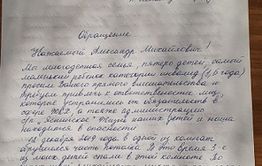 Обращение
Уважаемый Александр Михайлович!
Мы многодетная семья, пятеро детей, самый
маленький ребенок категории инвалид (1,6 года)
просим Вашего прямого вмешательства и
привлечь к ответственности лиц,
которые устранились от обязанностей в
сфере ЖКХ, а также администрацию
с/п "Яснинское". Жизнь наших детей и наша
находится в опасности
декабря 2019 года в одной из комнат
обрушилась часть потолка. В это время 3-е
из моих детей спали в этой комнате. До